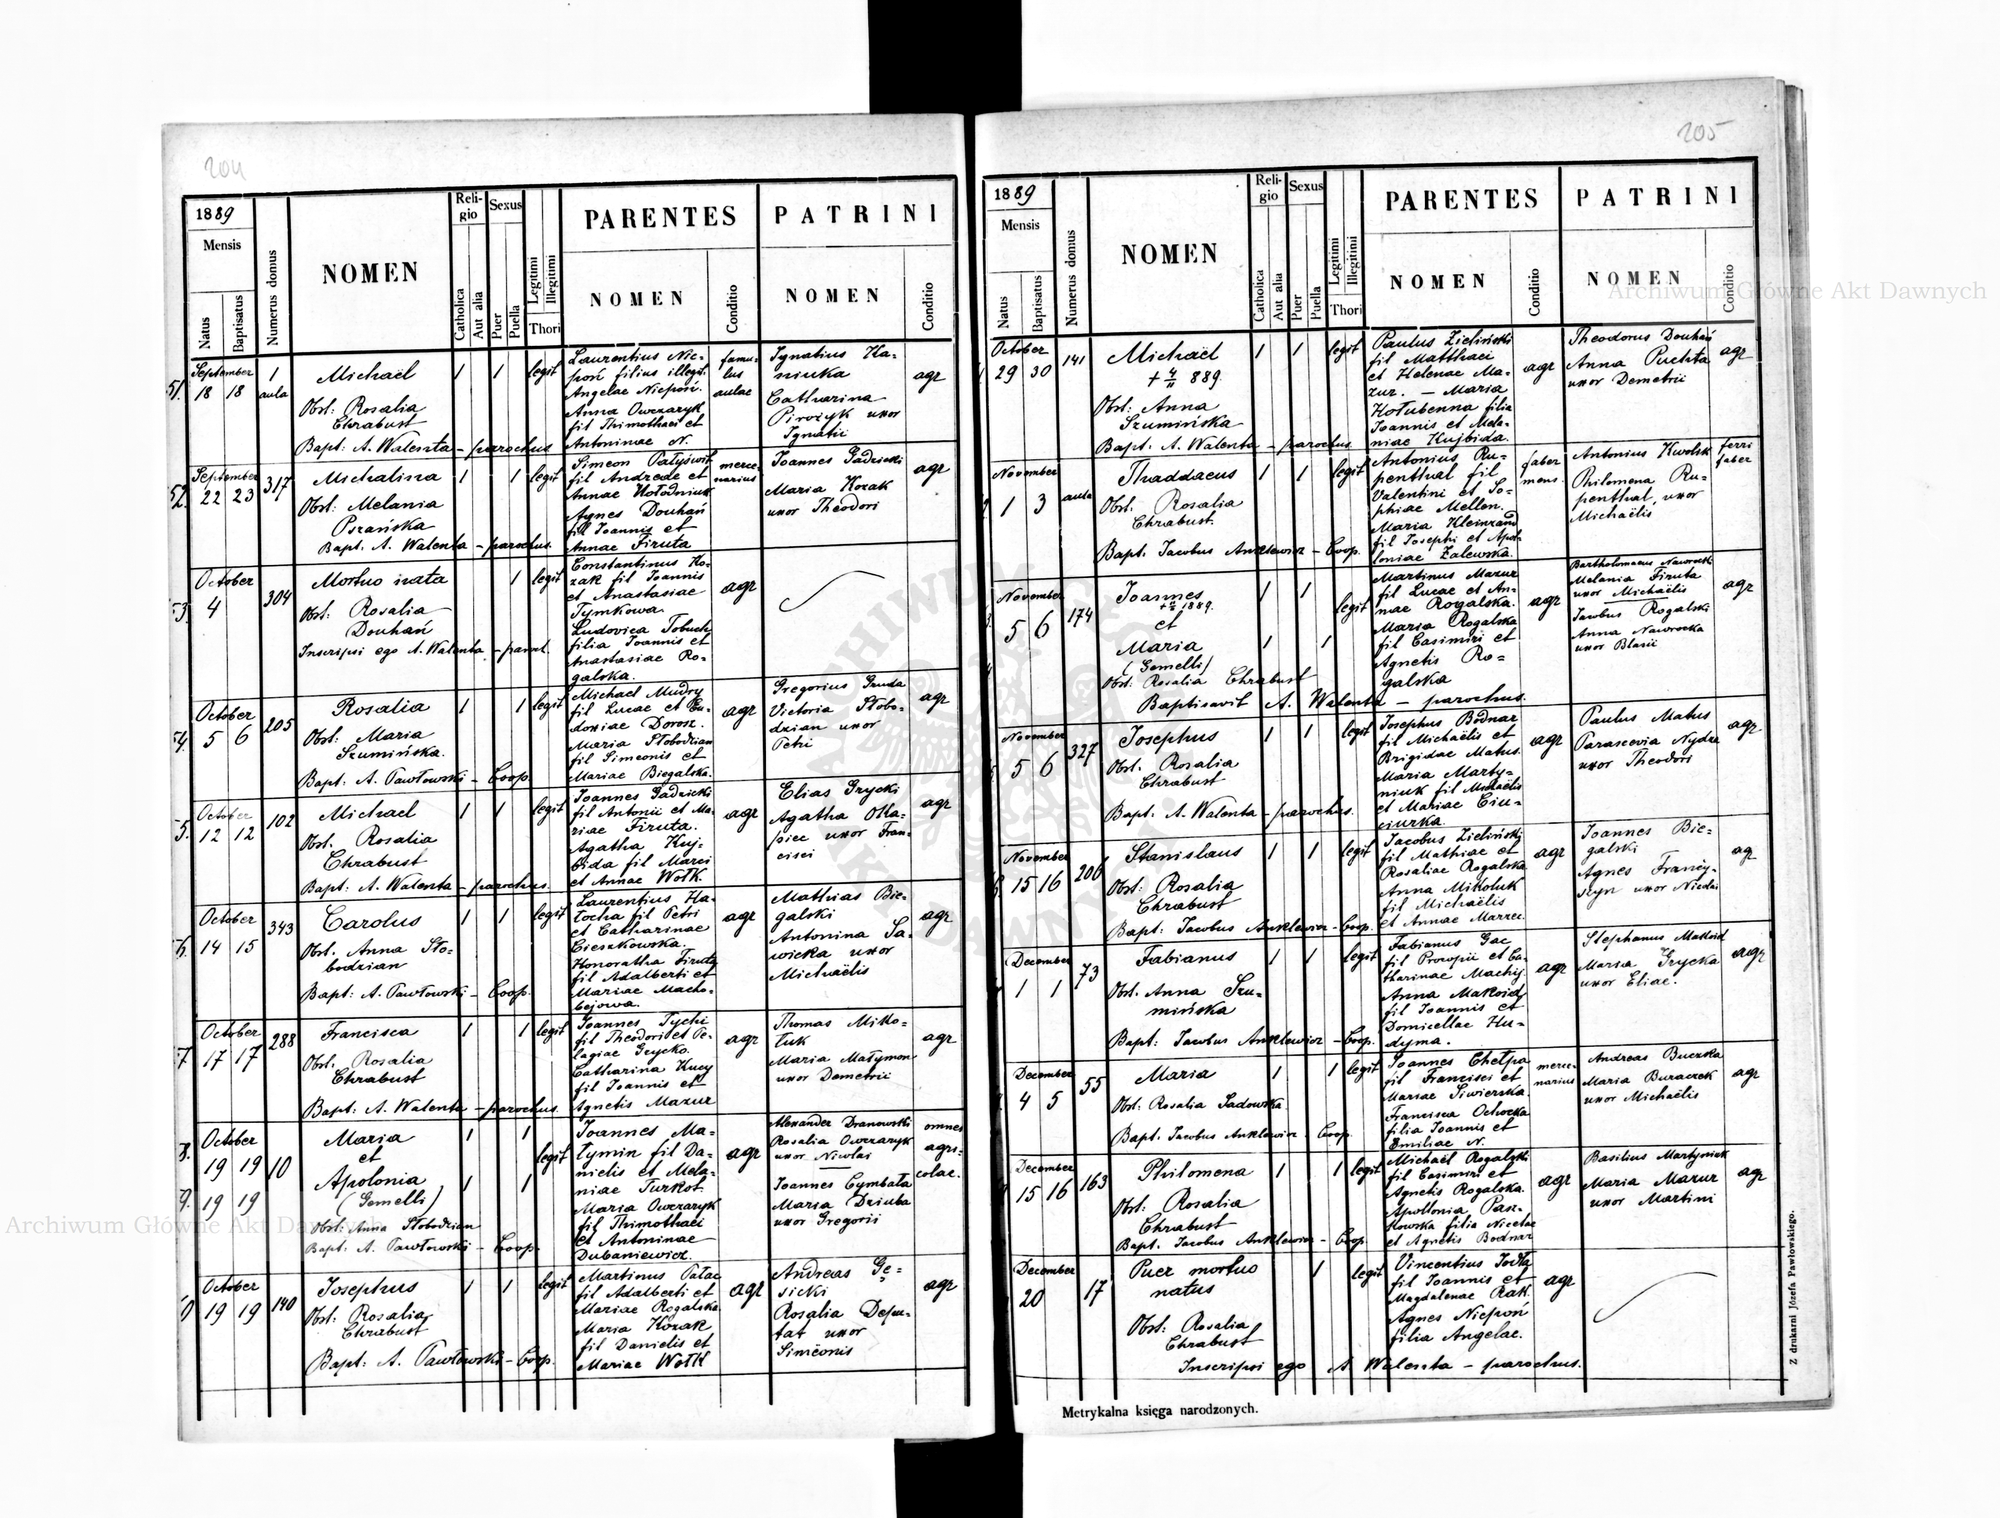 204
1889
Mensis
Natus
Baptisatus
Numerus domus
NOMEN
Religio
Catholica
Aut alia
Sexus
Puer
Puella
Legitimi
Illegitimi
Thori
PARENTES
NOMEN
Conditio
PATRINI
NOMEN
Conditio
51.
September
18 18
1
aula
Michaël
1 1 legit
Obst: Rosalia
Chrabust
Bapt: A. Walenta - parochus
Laurentius Nie-
poń filius illegit.
Angelae Niepoń.
Anna Owczaryk
fil Thimothaei et
Antoninae N.
famu-
lus
aulae
Ignatius Ha-
niuka
Catharina
Pirożyk uxor
Ignatii
agr
52.
September
22 23
317
Michalina
1 1 legit
Obst: Melania
Psrańska
Bapt. A. Walenta - parochus.
Simeon Pałyświt
fil Andreae et
Annae Hołodniuk
Agnes Douhań
fil Joannis et
Annae Firuta
merce-
narius
Joannes Gadzicki
Maria Kozak
uxor Theodori
agr
53.
October
4
304
Mortuo nata
1 legit
Obst: Rosalia
Douhań
Inscripsi ego A. Walenta - paroch.
Constantinus Ko-
zak fil Joannis
et Anastasiae
Tymkowa.
Ludovica Tobuch
filia Joannis et
Anastasiae Ro-
galska.
agr
54.
October
5 6
205
Rosalia
1 1 legit
Obst: Maria
Szumińska.
Bapt: A. Pawłowski - Coop.
Michael Mudry
fil Lucae et Eu-
doxiae Dorosz.
Maria Słobodzian
fil Simeonis et
Mariae Biegalska.
agr
Gregorius Gruda
Victoria Słobo-
dzian uxor
Petri
agr
5.
October
12 12
102
Michael
1 1 legit
Obst. Rosalia
Chrabust
Bapt: A. Walenta - parochus.
Joannes Gadzicki
fil Antonii et Ma-
riae Firuta.
Agatha Kuj-
bida fil Marci
et Annae Wołk.
agr
Elias Grycki
Agatha Oka-
piec uxor Fran-
cisci
agr
6.
October
14 15
343
Carolus
1 1 legit
Obst. Anna Sło-
bodzian
Bapt: A. Pawłowski - Coop.
Laurentius Ha-
łocha fil Petri
et Catharinae
Cieszkowska.
Honoratha Firuta
fil Adalberti et
Mariae Macho-
bejowa.
agr
Mathias Bie-
galski
Antonina Sa-
wicka uxor
Michaëlis
agr
7.
October
17 17
288
Francisca
1 1 legit
Obst. Rosalia
Chrabust
Bapt: A. Walenta - parochus.
Joannes Tychi
fil Theodori et Pe-
lagiae Grycko.
Catharina Kucy
fil Joannis et
Agnetis Mazur
agr
Thomas Miko-
łuk
Maria Małymon
uxor Demetrii
agr
8.
October
19 19
10
Maria
et
Apolonia
(Gemelli)
9.
19 19
1 1 legit
1 1
Obst: Anna Słobodzian
Bapt: A. Pawłowski - Coop.
Joannes Ma-
tymin fil Da-
nielis et Mela-
niae Turkot.
Maria Owczaryk
fil Thimothaei
et Antoninae
Dubaniewicz.
agr
Alexander Dranowski
Rosalia Owczaryk
uxor Nicolai
Joannes Cymbała
Maria Dziuba
uxor Gregorii
omnes
agri-
colae.
October
19 19
140
Josephus
1 1 legit
Obst: Rosalia
Chrabust
Bapt: A. Pawłowski - Coop.
Martinus Pałac
fil Adalberti et
Mariae Rogalska.
Maria Kozak
fil Danielis et
Mariae Wołk
agr
Andreas Ge-
sicki
Rosalia Depu-
tat uxor
Simëonis
agr
205
1889
Mensis
Natus
Baptisatus
Numerus domus
NOMEN
Religio
Catholica
Aut alia
Sexus
Puer
Puella
Legitimi
Illegitimi
Thori
PARENTES
NOMEN
Conditio
PATRINI
NOMEN
Conditio
October
29 30
141
Michaël
+ 4/11 889.
1 1 legit
Obst: Anna
Szumińska
Bapt: A. Walenta - parochus.
Paulus Zieliński
fil Matthaei
et Helenae Ma-
zur. - Maria
Hołubenna filia
Joannis et Mela-
niae Kujbida.
agr
Theodorus Douhań
Anna Puchta
uxor Demetrii
agr
November
1 3
aula
Thaddaeus
1 1 legit
Obst. Rosalia
Chrabust.
Bapt: Jacobus Anklewicz - Coop.
Antonius Ru-
penthal fil
Valentini et So-
phiae Mellen.
Maria Kleinrand
fil Josephi et Apol-
loniae Zalewska.
faber
mens.
Antonius Kwolsk
Philomena Ru-
penthal uxor
Michaëlis
ferri
faber
November
5 6
174
Joannes
1889.
et
Maria
(Gemelli)
1 1
legit
1 1
Obst: Rosalia Chrabust
Baptisavit A. Walenta - parochus.
Martinus Mazur
fil Lucae et An-
nae Rogalska.
Maria Rogalska
fil Casimiri et
Agnetis Ro-
galska
agr
Bartholomaeus Nawrocki
Melania Firuta
uxor Michaëlis
Jacobus Rogalski
Anna Nawrocka
uxor Blasii
agr
November
5 6
327
Josephus
1 1 legit
Obst: Rosalia
Chrabust
Bapt: A. Walenta - parochus.
Josephus Bodnar
fil Michaëlis et
Brigidae Matus.
Maria Marty-
niuk fil Michaëlis
et Mariae Ciu-
ciurka.
agr
Paulus Matus
Parascevia Nydza
uxor Theodori
agr
November
15 16
206
Stanislaus
1 1 legit
Obst: Rosalia
Chrabust
Bapt: Jacobus Anklewicz - Coop.
Jacobus Zieliński
fil Mathiae et
Rosaliae Rogalska
Anna Mikoluk
fil Michaëlis
et Annae Marzec.
agr
Joannes Bie-
galski
Agnes Francy-
szyn uxor Nicolai
ag
December
1 1
73
Fabianus
1 1 legit
Obst: Anna Szu-
mińska
Bapt: Jacobus Anklewicz - Coop.
Fabianus Gac
fil Procopii et Ca-
tharinae Machij.
Anna Makoid
fil Joannis et
Domicellae Hu-
dyma.
agr
Stephanus Makoid
Maria Grycka
uxor Eliae.
agr
December
4 5
55
Maria
1 1 legit
Obst: Rosalia Sadowska
Bapt: Jacobus Anklewicz - Coop.
Joannes Chełpa
fil Francisci et
Mariae Siwierska.
Francisca Ochocka
filia Joannis et
Emiliae N.
merce-
narius
Andreas Buczka
Maria Buraczek
uxor Michaëlis
agr
December
15 16
163
Philomena
1 1 legit
Obst: Rosalia
Chrabust
Bapt. Jacobus Anklewicz - Coop.
Michaël Rogalski
fil Casimiri et
Agnetis Rogalska.
Apollonia Pasz-
kowska filia Nicetae
et Agnetis Bodnar
agr
Basilius Martyniuk
Maria Mazur
uxor Martini
agr
December
20
17
Puer mortuo
natus
1 legit
Obst: Rosalia
Chrabust
Inscripsi ego A. Walenta - parochus.
Vincentius Jodła
fil Joannis et
Magdalenae Rak.
Agnes Niepoń
filia Angelae.
agr
Metrykalna księga narodzonych.
Z drukarni Józefa Pawłowskiego.
Archiwum Główne Akt Dawnych
Archiwum Główne Akt Dawnych
ARCHIWUM GŁÓWNE AKT DAWNYCH